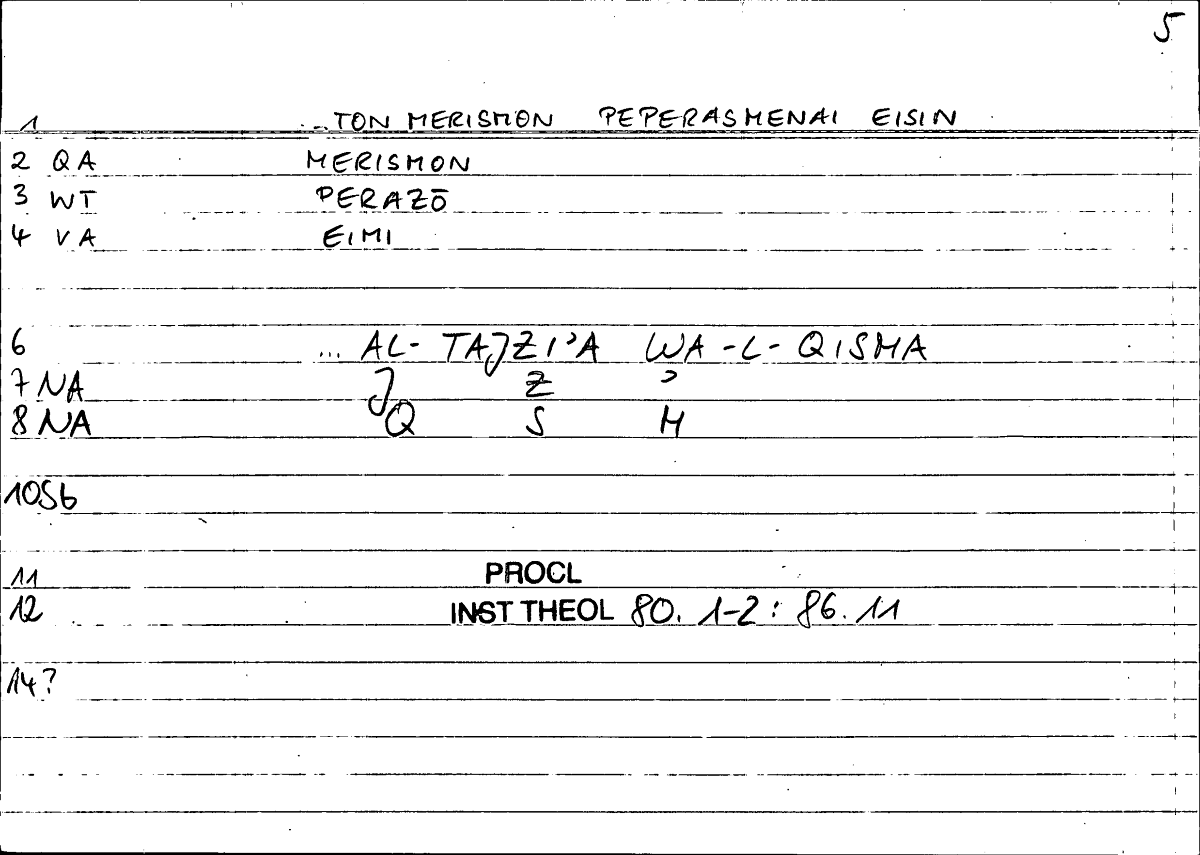 5
1 ... TON MERISMON PEPERASMENAI EISIN
2 QA MERISMON
3 WT PERAZŌ
4 VA EIMI
6 ... AL-TAJZI'A WA-L-QISMA
7 NA J Z '
8 NA Q S M
10 Sb
11 PROCL
12 INST THEOL 80. 1-2 : 86. 11
14?